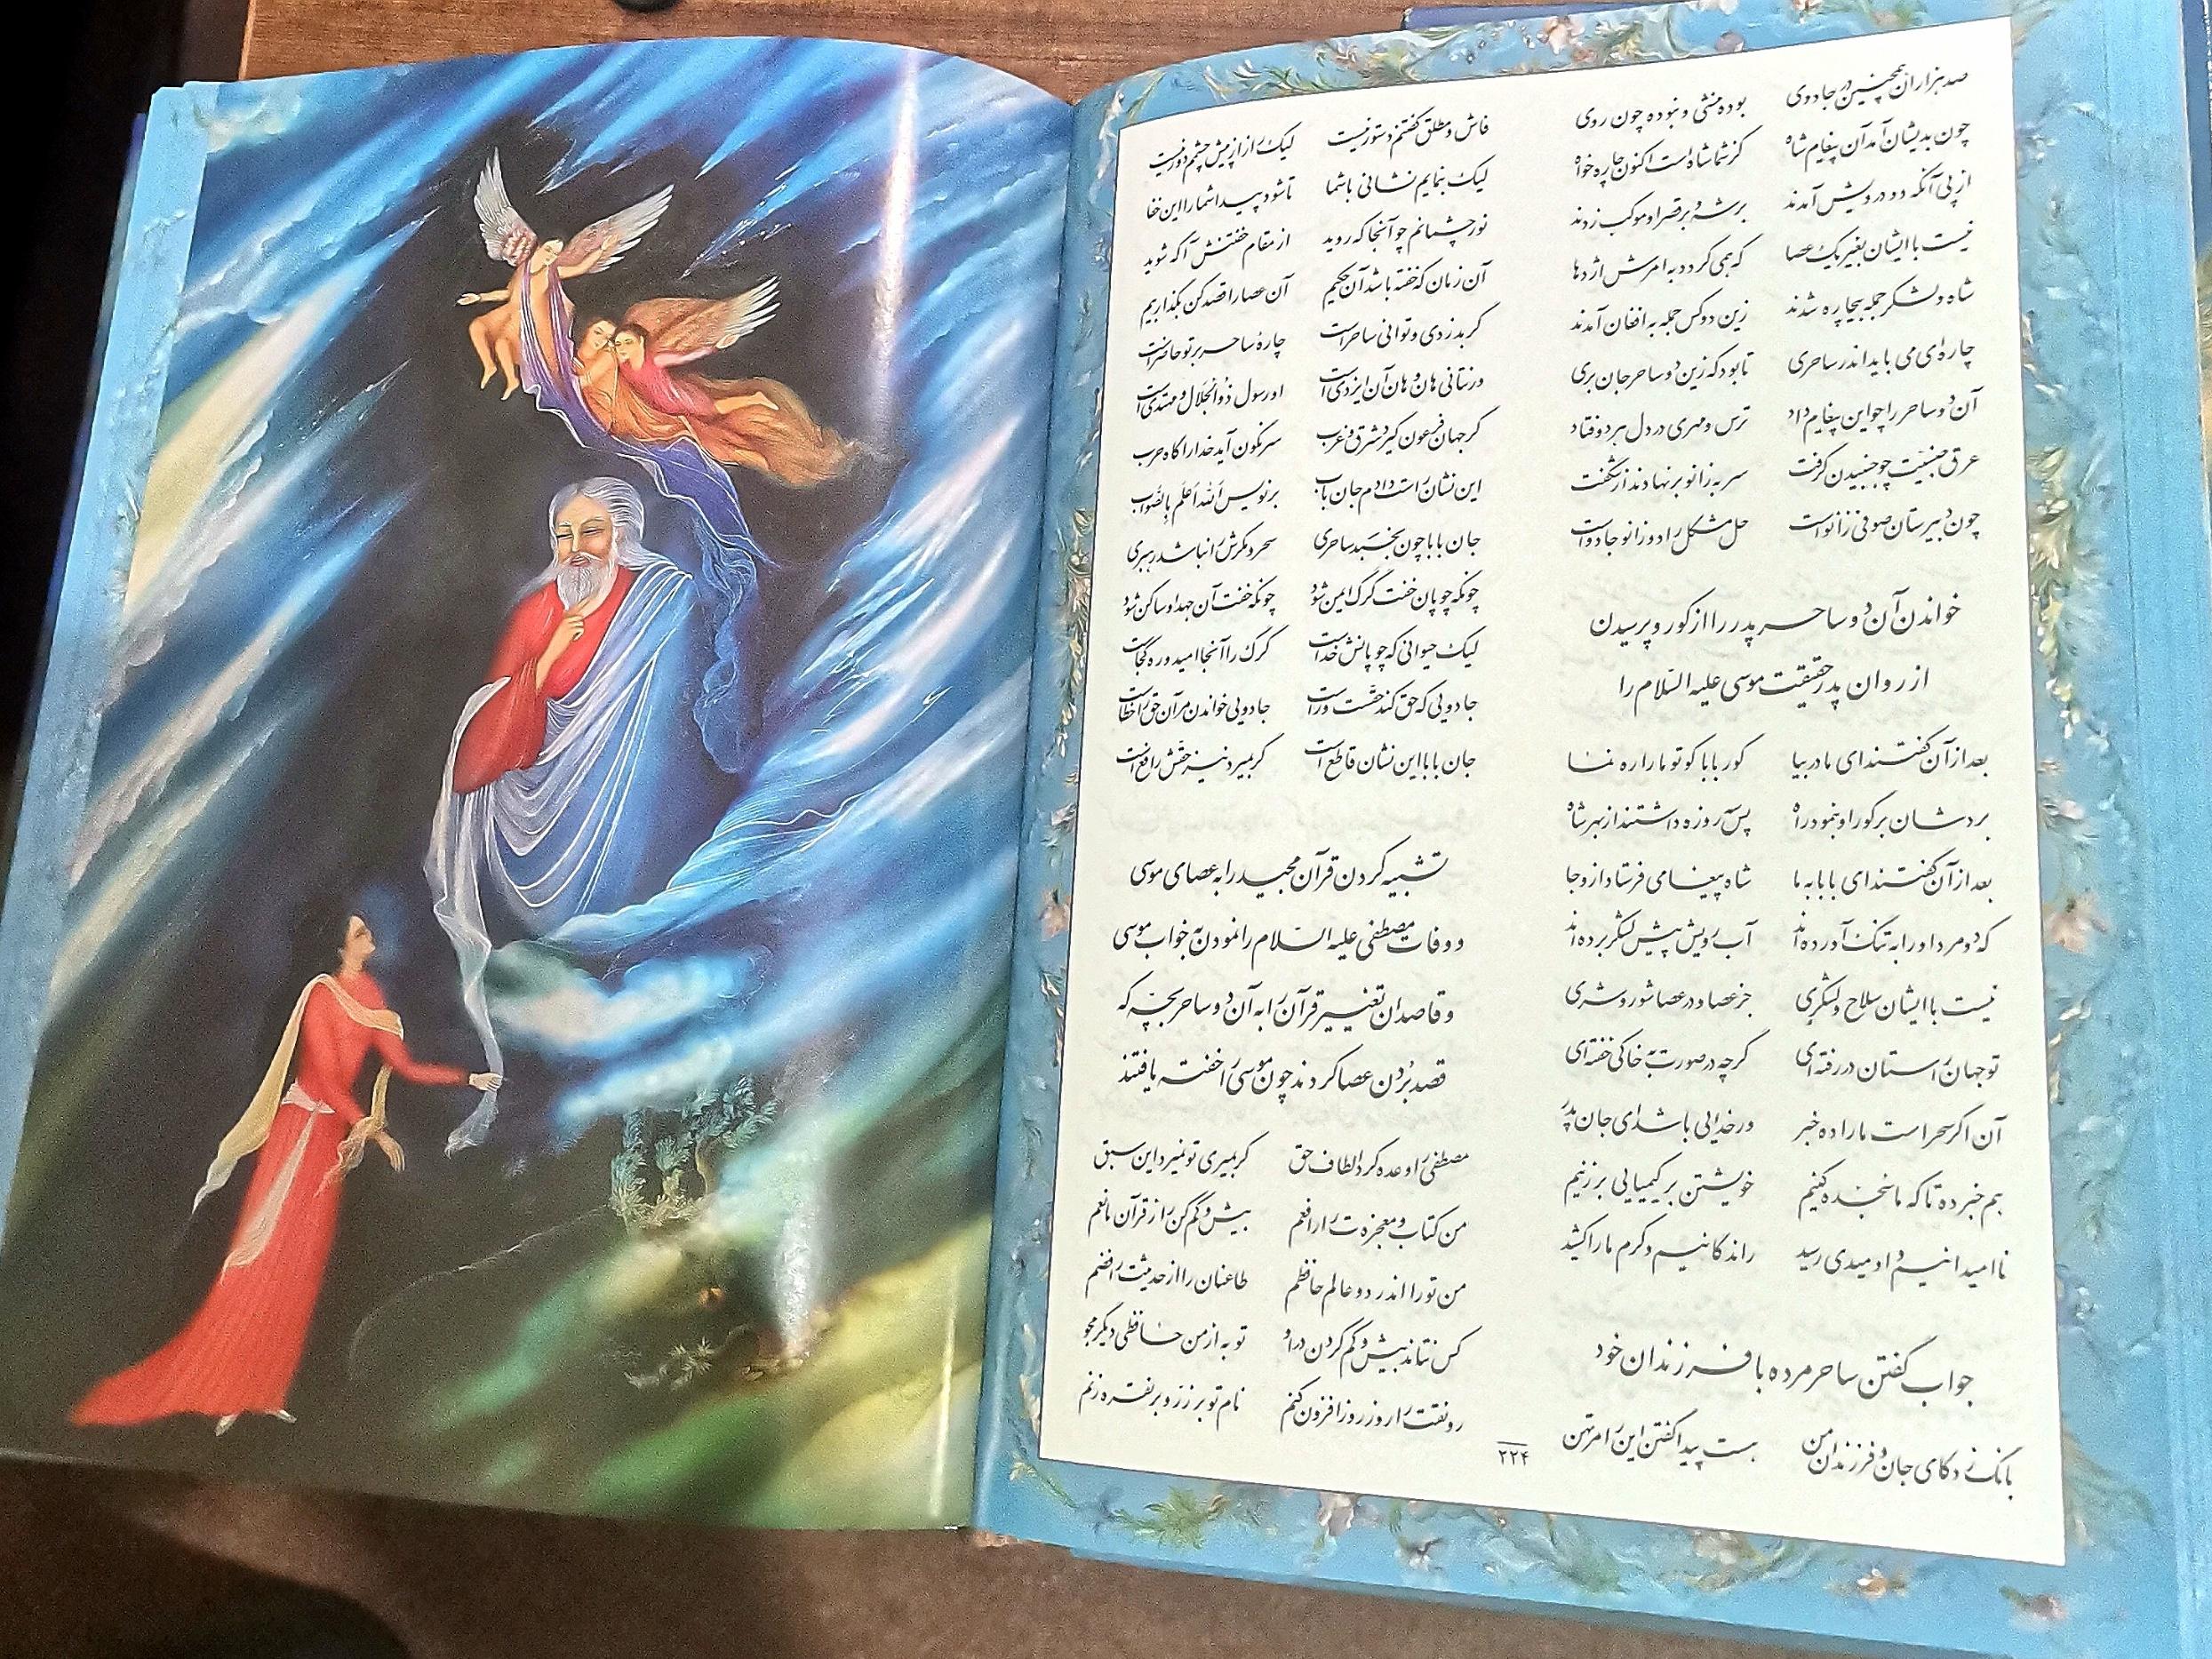 صد هزاران همچنین در جادوی بوده منشی و نبوده چون روی
چون بدیشان آمد آن پیغام شاه کز شما شاه است اکنون چاره خواه
از پی آنکه دو درویش آمدند بر شه و بر قصر او موکب زدند
نیست با ایشان بغیر یک عصا که همی گردد به امرش اژدها
شاه و لشکر جمله بیچاره شدند زین دو کس جمله به افغان آمدند
چاره‌ای می باید اندر ساحری تا بود که زین دو ساحر جان بری
آن دو ساحر را چو این پیغام داد ترس و مهری در دل هر دو فتاد
عرق جنسیت چو جنبیدن گرفت سر به زانو بر نهادند از شگفت
چون دبیرستان صوفی زانو است حل مشکل را دو زانو جادو است
خواندن آن دو ساحر پدر را از گور و پرسیدن
از روان پدر حقیقت موسی علیه السّلام را
بعد از آن گفتند ای مادر بیا گور بابا کو تو ما را ره نما
بردشان بر گور او بنمود راه پس سه روزه داشتند از بهر شاه
بعد از آن گفتند ای بابا به ما شاه پیغامی فرستاد از وجا
که دو مرد او را به تنگ آورده‌اند آب رویش پیش لشکر برده‌اند
نیست با ایشان سلاح و لشکری جز عصا و در عصا شور و شری
تو جهان راستان در رفته‌ای گرچه در صورت به خاکی خفته‌ای
آن اگر سحر است ما را ده خبر ور خدایی باشد ای جان پدر
هم خبر ده تا که ما سجده کنیم خویشتن بر کیمیایی بر زنیم
ناامیدانیم و اومیدی رسید راندگانیم و کرم ما را کشید
جواب گفتن ساحر مرده با فرزندان خود
بانگ زد کای جان و فرزندان من هست پیدا گفتن این را مرتهن
فاش و مطلق گفتنم دستور نیست لیک راز از پیش چشمم دور نیست
لیک بنمایم نشانی با شما تا شود پیدا شما را این خفا
نور چشمانم چو آنجا که روید از مقام خفتنش آگه شوید
آن زمان که خفته باشد آن حکیم آن عصا را قصد کن بگذار بیم
گر بدزدی و توانی ساحر است چارهٔ ساحر بر تو حاضر است
ور نتانی هان و هان آن ایزدی است او رسول ذوالجلال و مهتدی است
گر جهان فرعون گیرد شرق و غرب سرنگون آید خدا را گاه حرب
این نشان راست دادم جان باب برنویس الله اعلم بالصّواب
جان بابا چون بخسبد ساحری سحر و مکرش را نباشد رهبری
چونکه چوپان خفت گرگ ایمن شود چونکه خفت آن جهد او ساکن شود
لیک حیوانی که چوپانش خداست گرگ را آنجا امید و ره کجاست
جادویی که حق کند حقّست و راست جادویی خواندن مر آن حق را خطاست
جان بابا این نشان قاطع است گر بمیرد نیز حقش رافع است
تشبیه کردن قرآن مجید را به عصای موسی
و وفات مصطفی علیه السّلام را نمودن به خواب موسی
و قاصدان تغییر قرآن را به آن دو ساحر بچّه که
قصد بُردن عصا کردند چون موسی را خفته یافتند
مصطفی را وعده کرد الطاف حق گر بمیری تو نمیرد این سبق
من کتاب و معجزه‌ت را رافعم بیش و کم کن را ز قرآن مانعم
من تو را اندر دو عالم حافظم طاعنان را از حدیثت رافضم
کس نتاند بیش و کم کردن در او تو به از من حافظی دیگر مجو
رونقت را روز روز افزون کنم نام تو بر زرّ و بر نقره زنم
۲۲۴